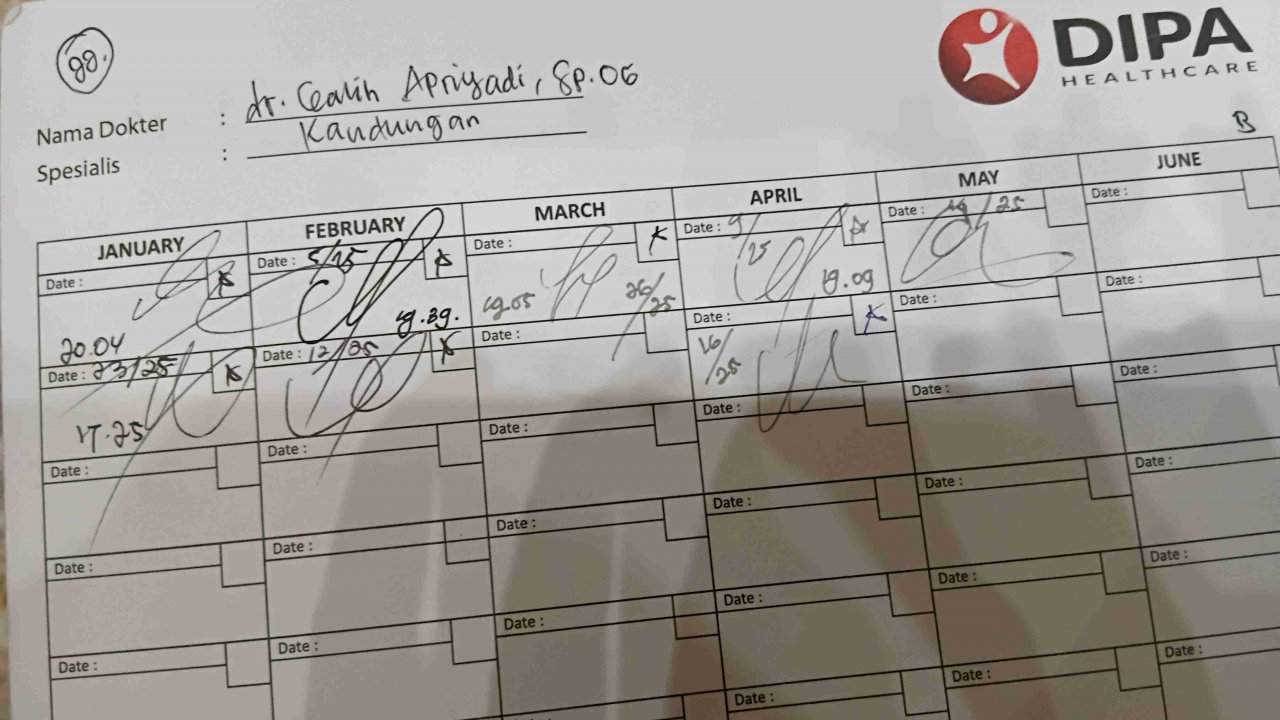 88.
DIPA
HEALTHCARE
Nama Dokter : dr. Galih Apriyadi, Sp.OG
Spesialis : Kandungan
B
JANUARY FEBRUARY MARCH APRIL MAY JUNE
Date : Date : 5/25 Date : Date : 9/25 Date : 14/25 Date :
20.04 19.39. 19.05 26/25 19.09
Date : 23/25 Date : 12/25 Date : Date : 16/25 Date : Date :
17.25
Date : Date : Date : Date : Date : Date :
Date : Date : Date : Date : Date : Date :
Date : Date : Date : Date : Date : Date :
Date : Date : Date :